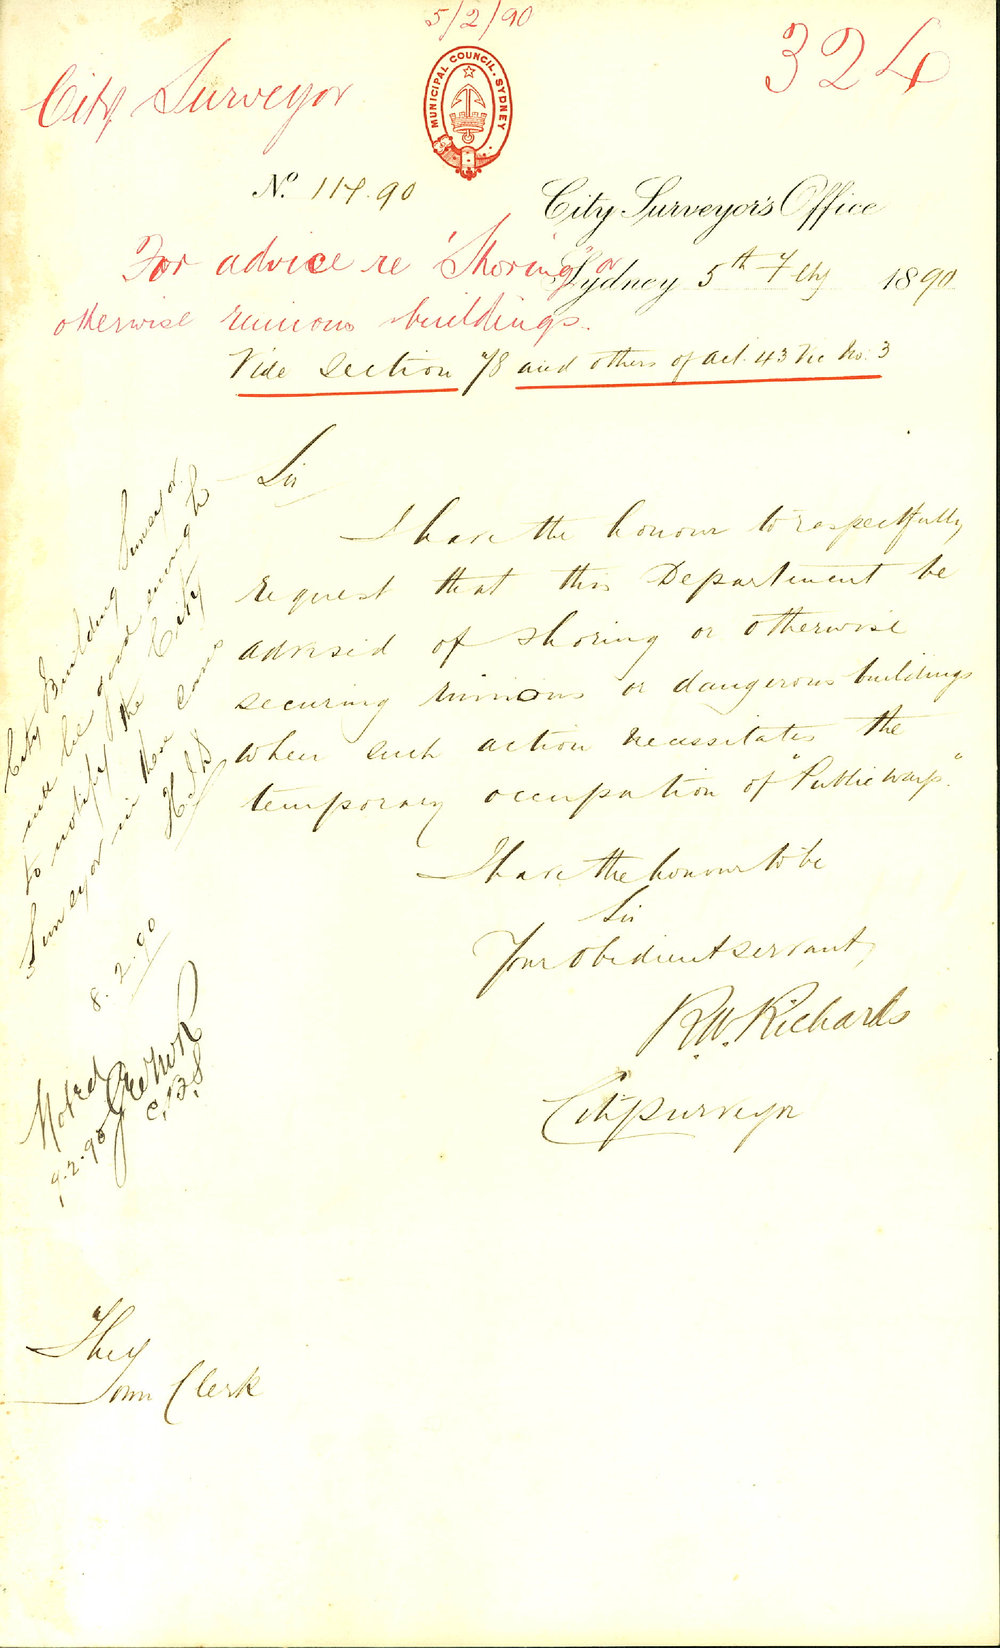 5/2/90
324
City Surveyor
MUNICIPAL COUNCIL. SYDNEY
No. 114.90
City Surveyor's Office
For advice re "Shoring" or
Sydney 5th Feby 1890
otherwise ruinous buildings.
Vide Section 78 and others of act. 43 Vic No. 3
Sir
I have the honour to respectfully
request that this Department be
advised of shoring or otherwise
securing ruinous or dangerous buildings
when such action necessitates the
temporary occupation of "Public ways".
I have the honour to be
Sir
Your obedient servant,
R.W. Richards
City Surveyor
City Building Surveyor
will be good enough
to notify the City
Surveyor in these cases
8.2.90
Noted
C.B.S.
9.2.90
The
Town Clerk